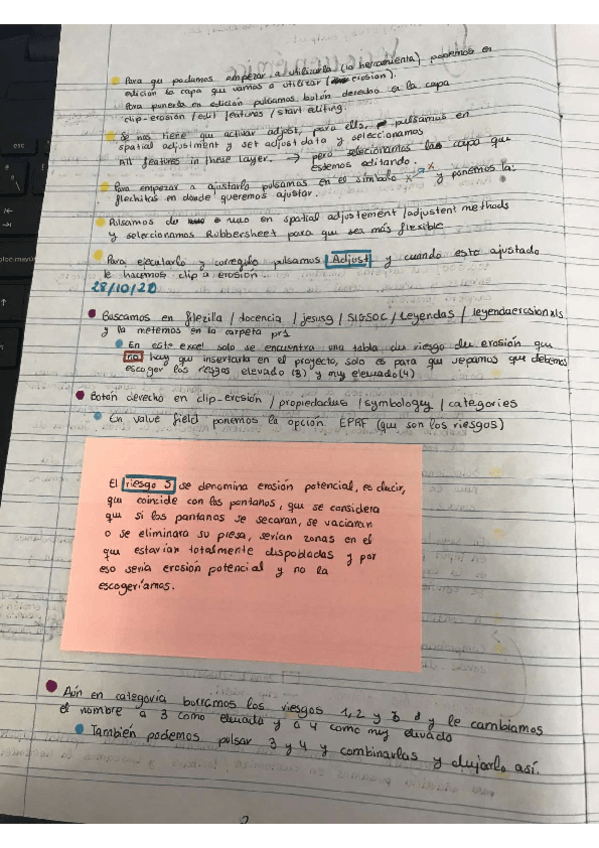 Para que podamos empezar a utilizarla (la herramienta) ponemos en
edición la capa que vamos a utilizar (erosion).
Para ponerla en edición pulsamos botón derecho a la capa
clip-erosión / edit features / start editing.
Se nos tiene que activar adjust, para ello, pulsamos en
spatial adjustment y set adjust data y seleccionamos
All features in these layer. → pero selecionamos la capa que
estemos editando.
Para empezar a ajustarlo pulsamos en el símbolo y ponemos la
flechitas en donde queremos ajustar.
Pulsamos de uno en spatial adjustement / adjustent methods
y seleccionamos Rubbersheet para que sea más flexible
Para ejecutarlo y corregirlo pulsamos Adjust y cuando esta ajustado
le hacemos clip a erosión.
28/10/20
Buscamos en filezilla / docencia / jesusg / SIGSOC / Leyendas / leyendaerosion.xls
y la metemos en la carpeta pr1
En este excel solo se encuentra una tabla du riesgo du erosión que
no hay que insertarla en el proyecto, solo es para que sepamos que debemos
escoger los riesgos elevado (3) y muy elevado (4)
Botón derecho en clip-erosión / propiedadus / symbology / categories
En value field ponemos la opción EPRF (que son los riesgos)
El riesgo 5 se denomina erosión potencial, es decir,
que coincide con los pantanos, que se considera
que si los pantanos se secaran, se vaciaran
o se eliminara su presa, serían zonas en el
que estarían totalmente dispobladas y por
eso sería erosión potencial y no la
escogeríamos.
Aún en categoría borramos los riesgos 1, 2 y 5 y le cambiamos
el nombre a 3 como elevado y a 4 como muy elevado
También podemos pulsar 3 y 4 y combinarlas y dujarlo así.